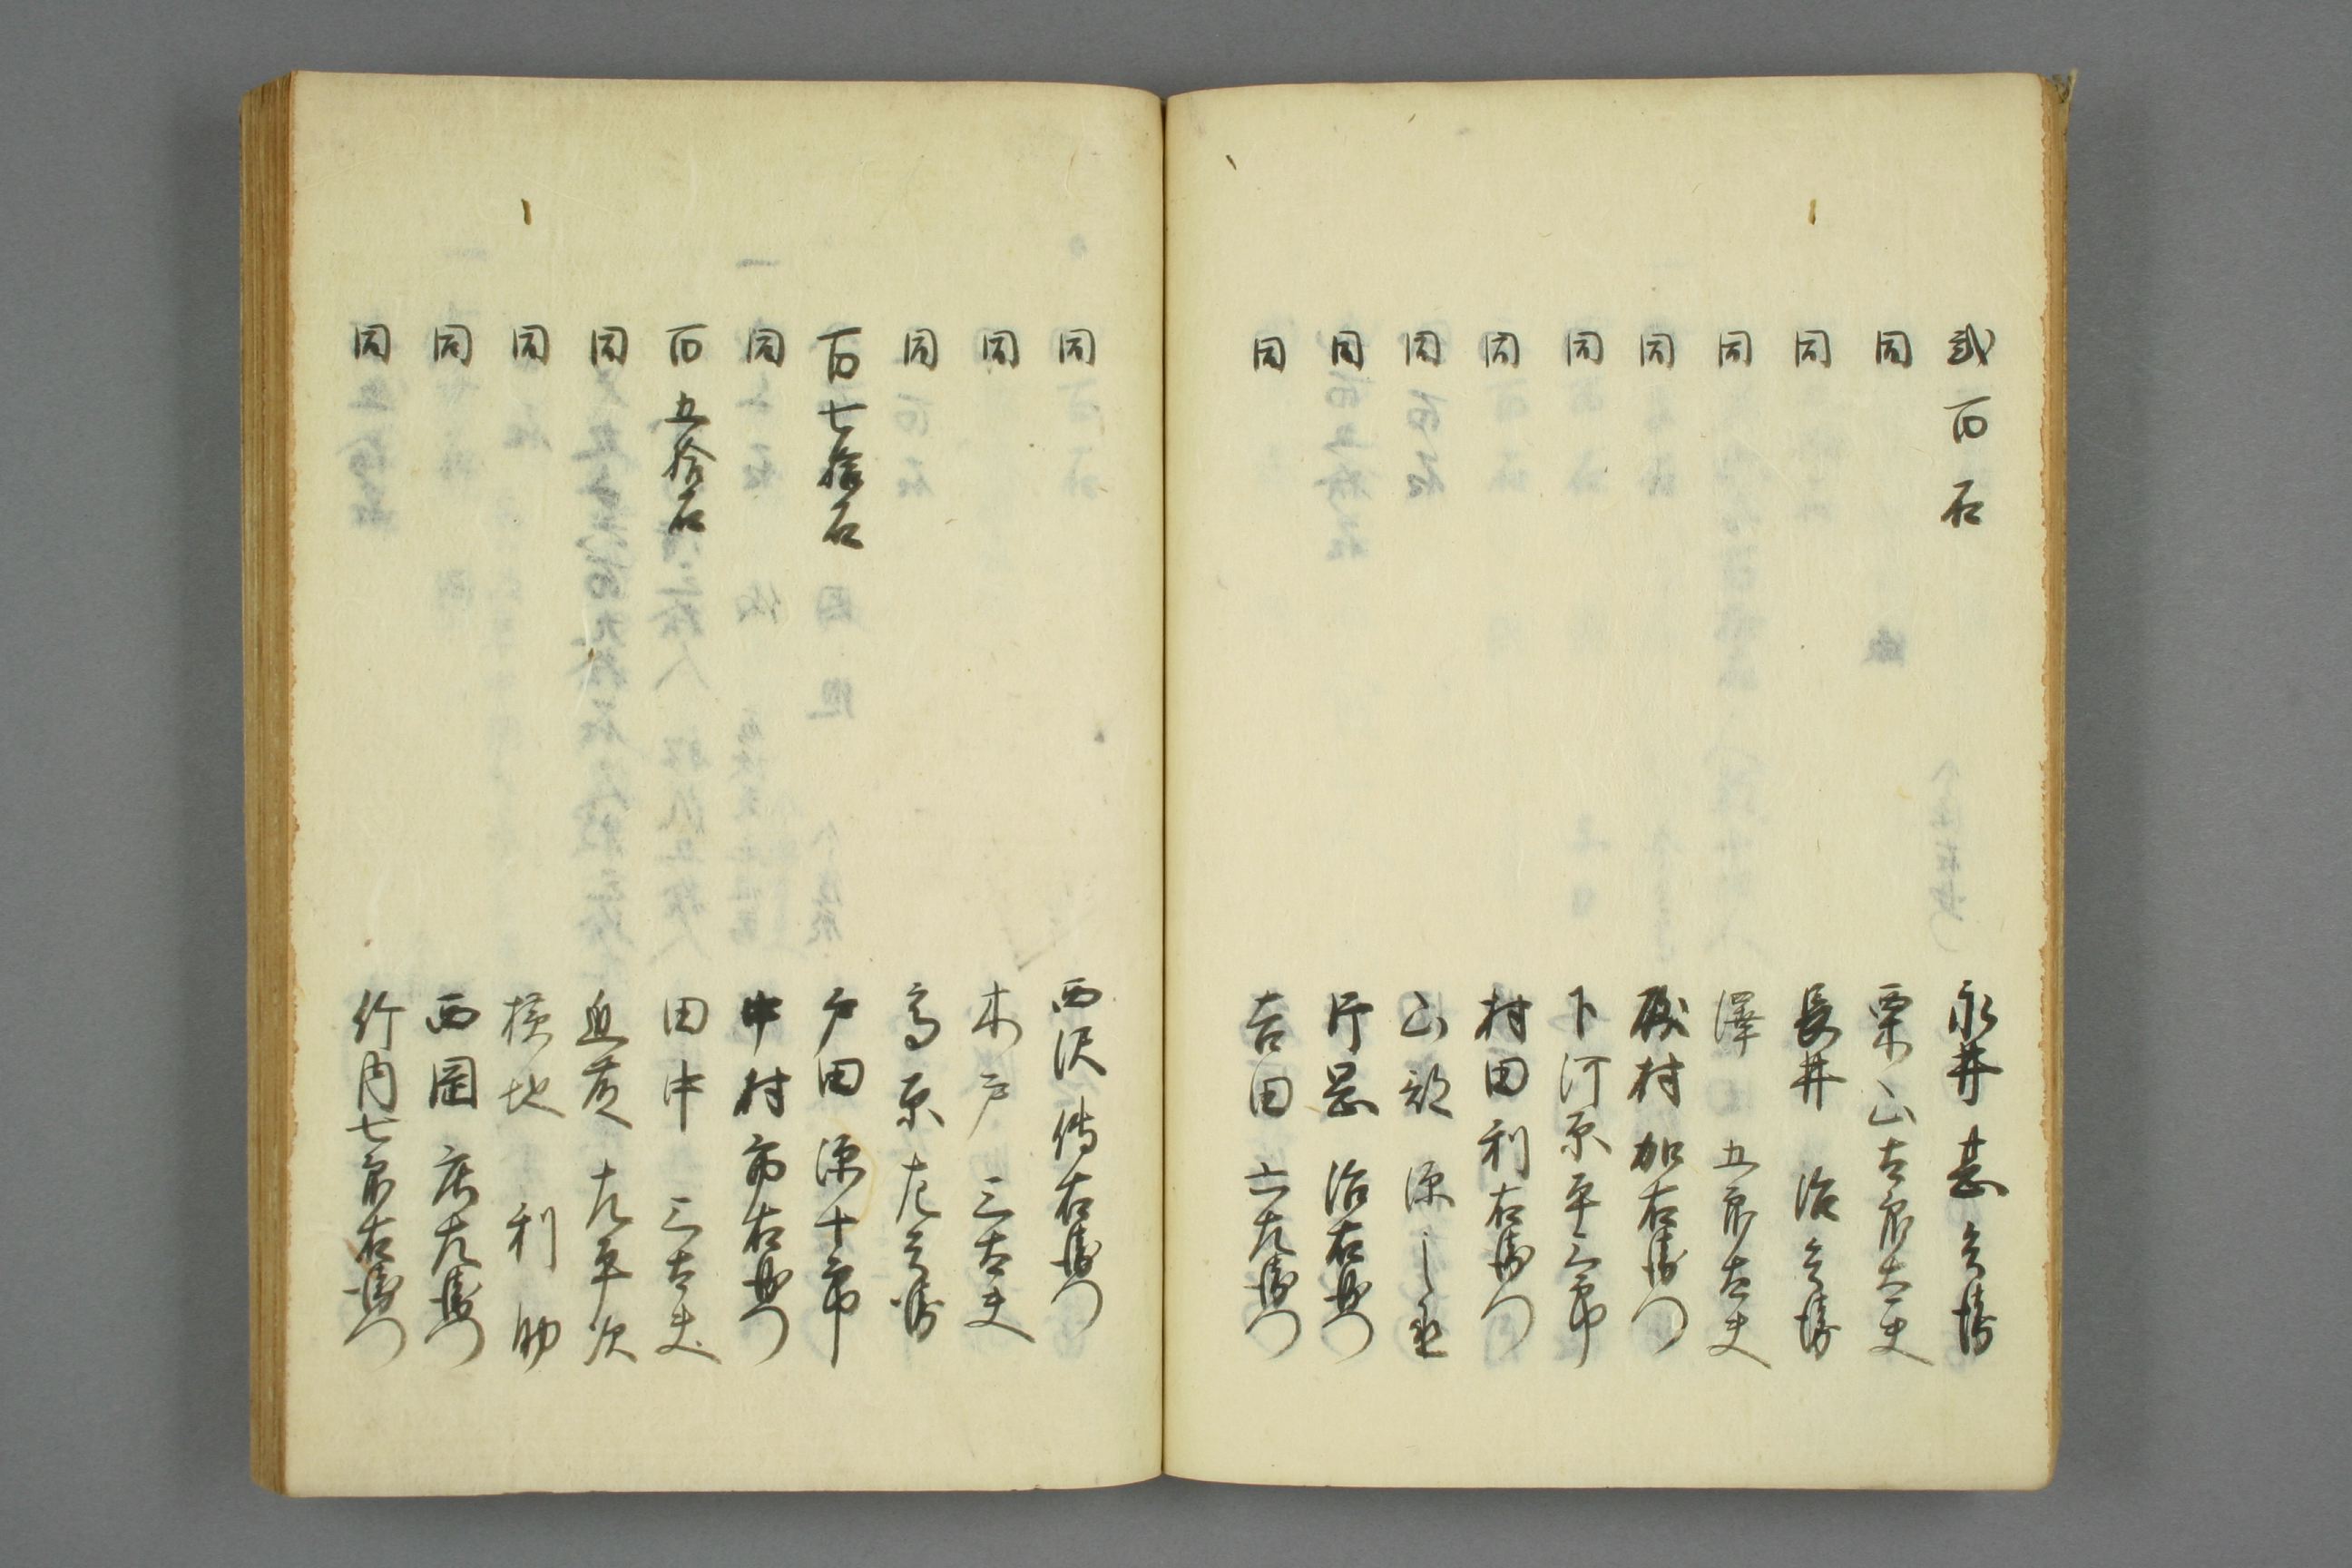 弐百石 永井甚兵衛
同 栗山吉郎太夫
同 長井治兵衛
同 澤五郎太夫
同 磯村加右衛門
同 下河原平三郎
同 村田利右衛門
同 山部源之丞
同 片岡治右衛門
同 吉田六左衛門
同 西沢傳右衛門
同 木戸三太夫
同 高原左兵衛
百七拾石 戸田源十郎
同 中村市右衛門
百五拾石 田中三太夫
同 近藤左平次
同 横地利助
同 西岡庄左衛門
同 竹内七郎右衛門